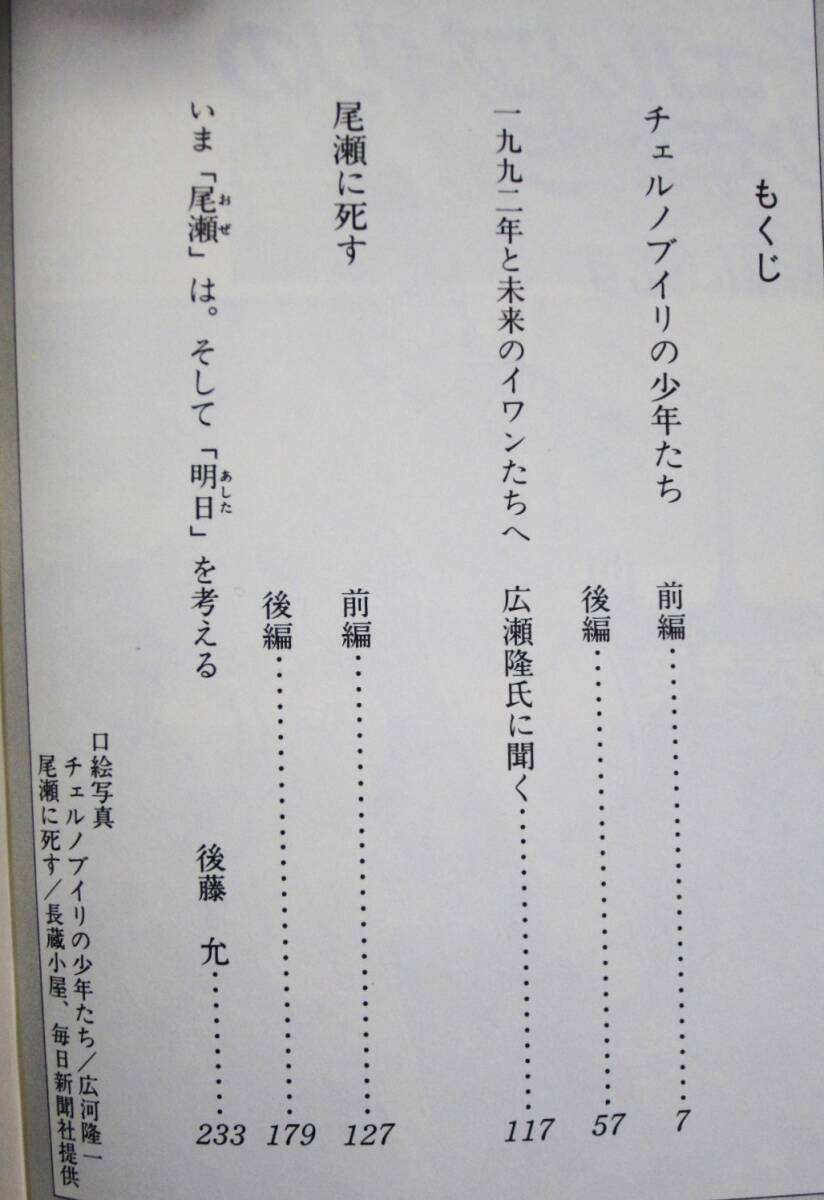 もくじ
チェルノブイリの少年たち
前編……………………7
後編……………………57
一九九二年と未来のイワンたちへ 広瀬隆氏に聞く……………117
尾瀬に死す
前編……………………127
後編……………………179
いま「尾瀬」は。そして「明日」を考える 後藤 允…………233
おぜ
あした
口絵写真
チェルノブイリの少年たち／広河隆一
尾瀬に死す／長蔵小屋、毎日新聞社提供